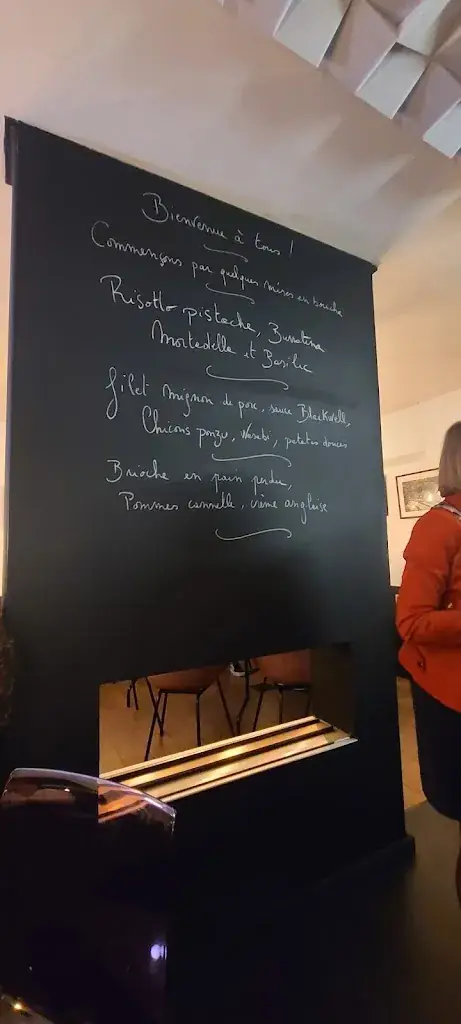 Bienvenue à tous !
Commençons par quelques mises en bouche
Risotto pistache, Burratina
Mortadelle et Basilic
filet mignon de porc, sauce Blackwell,
Chicons ponzu, Wasabi, patates douces
Brioche en pain perdu,
Pommes cannelle, crème anglaise